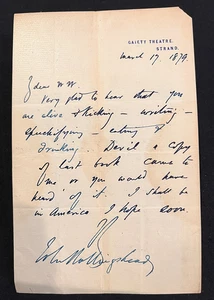 GAIETY THEATRE,
STRAND.
March 17. 1879.
Dear WW
Very glad to hear that you
are alive & kicking — writing —
speechifying — eating &
drinking. Devil a copy
of last book came to
me or you would have
heard of it. I shall be
in America I hope soon.
Yr
John Hollingshead